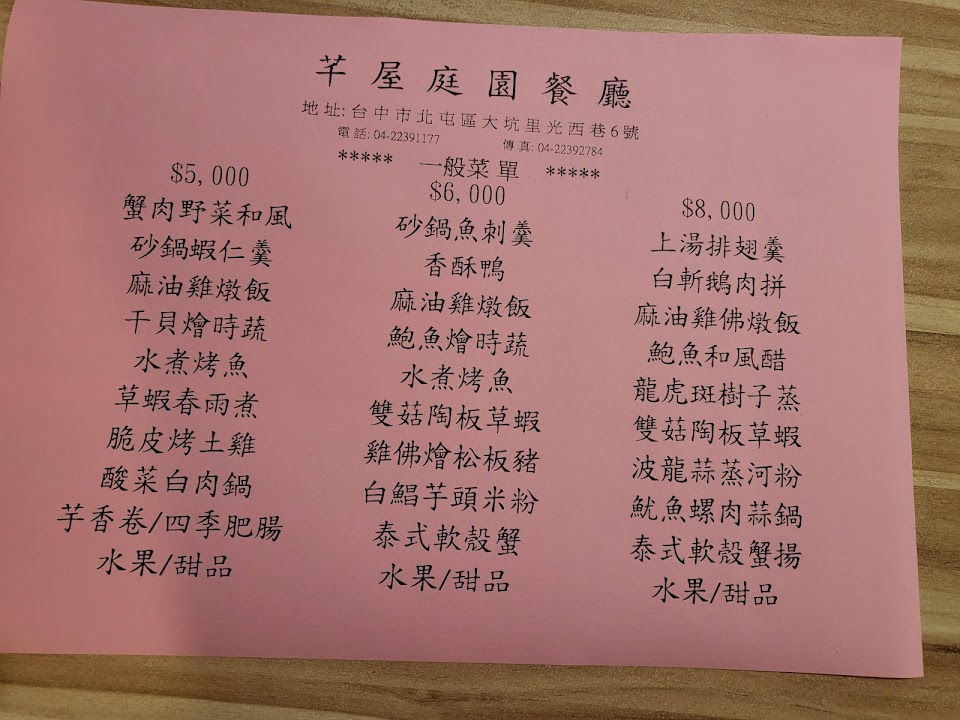 芊屋庭園餐廳
地址:台中市北屯區大坑里光西巷6號
電話: 04-22391177 傳真: 04-22392784
***** 一般菜單 *****
$5,000
蟹肉野菜和風
砂鍋蝦仁羹
麻油雞燉飯
干貝燴時蔬
水煮烤魚
草蝦春雨煮
脆皮烤土雞
酸菜白肉鍋
芋香卷/四季肥腸
水果/甜品
$6,000
砂鍋魚刺羹
香酥鴨
麻油雞燉飯
鮑魚燴時蔬
水煮烤魚
雙菇陶板草蝦
雞佛燴松板豬
白鯧芋頭米粉
泰式軟殼蟹
水果/甜品
$8,000
上湯排翅羹
白斬鵝肉拼
麻油雞佛燉飯
鮑魚和風醋
龍虎斑樹子蒸
雙菇陶板草蝦
波龍蒜蒸河粉
魷魚螺肉蒜鍋
泰式軟殼蟹揚
水果/甜品